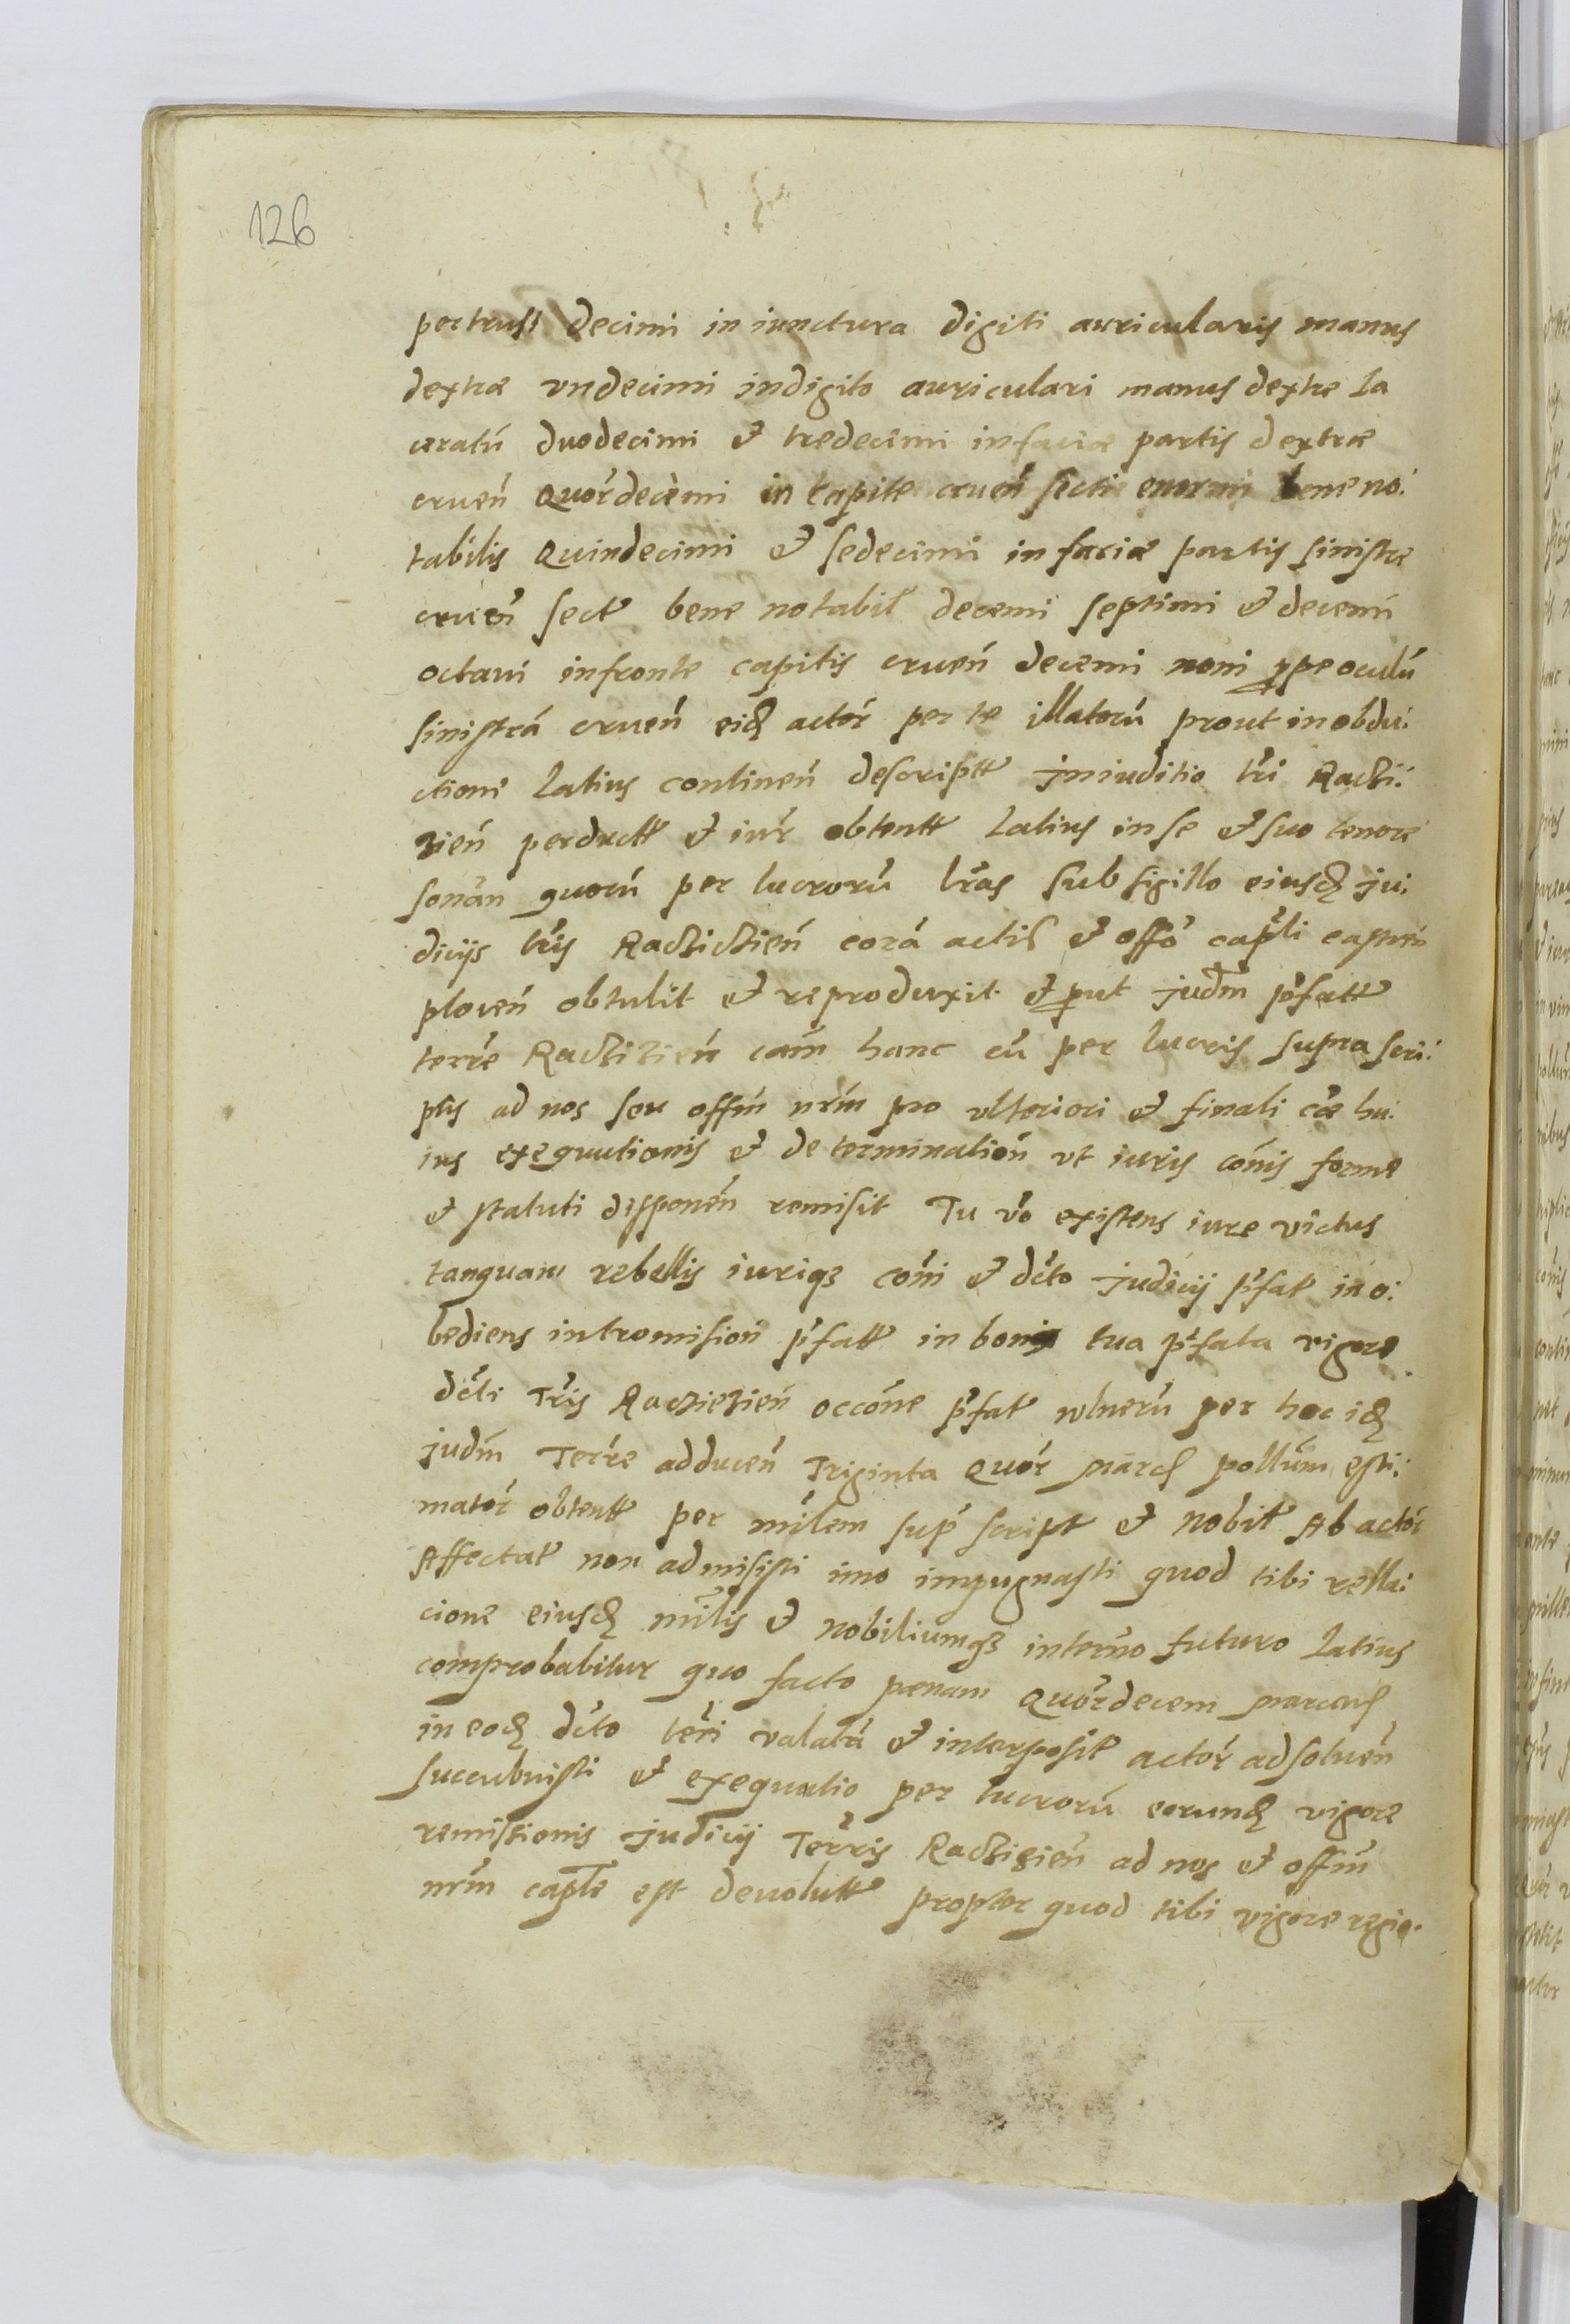 126
pertrusi decimi in iunctura digiti auricularis manus
dextræ vndecimi indigito auriculari manus dextre la
ceratú duodecimi et tredecimi infaciæ partis dextræ
crueń Quórdecémi in capite cruen secti enormi bene no:
tabilis Quindecimi et sedecimi infaciæ partis sinistre
crueń sect bene notabil decemi septimi et decemi
octaui infronte capitis crueń decemi noni ꝓpe oculú
sinistrá crueń eid actór per te illatorú prout inobdu:
ctione latius continen̄ descriptt Jniuditio tri Radzi:
zień perductt et iur obtentt latius inse et suo tenore
sonan̄ quorú per lucrorú lr̄as sub sigillo eiusd ju:
dicijs tris Radzidzień corá actis et offo capli
plocen̄ obtulit et reproduxit et ꝓut judm̄ pr̄fatt
terre Radzizień cām hanc cú per lucris suprascri:
ptis ad nos seu offm̄ nrm̄ pro vlteriori et finali cæ hu:
ius exequutionis et determination̄ vt iuris cōnis forme
et statuti disponen̄ remisit Tu vo existens iure victus
tanquam rebellis iuriqз cōni et dcto judicij pfat ino:
bediens intromision̄ pfatt in bonis tua pfata vigore
dcti Tris Radziezień occōne pfat wlnerú per hoc id
judm̄ Terre adducen̄ Triginta Quór march pollúm esti:
matór obtentt per milem sup script et Nobil Ab actór
Affectat non admisisti imo impugnasti quod tibi rella:
cione eiusd mīlis et Nobiliumqз interno futuro latius
comprobabitur quo facto pænam Quórdecem marcas
in eod dcto teri valatá et interposit actór adsoluen̄
succubuisti et exequutio per lucrorú eorund vigore
remissionis judicij Terris Radzizień ad nos et offm̄
nrm̄ caple est deuolutt propter quod tibi vigore regio.